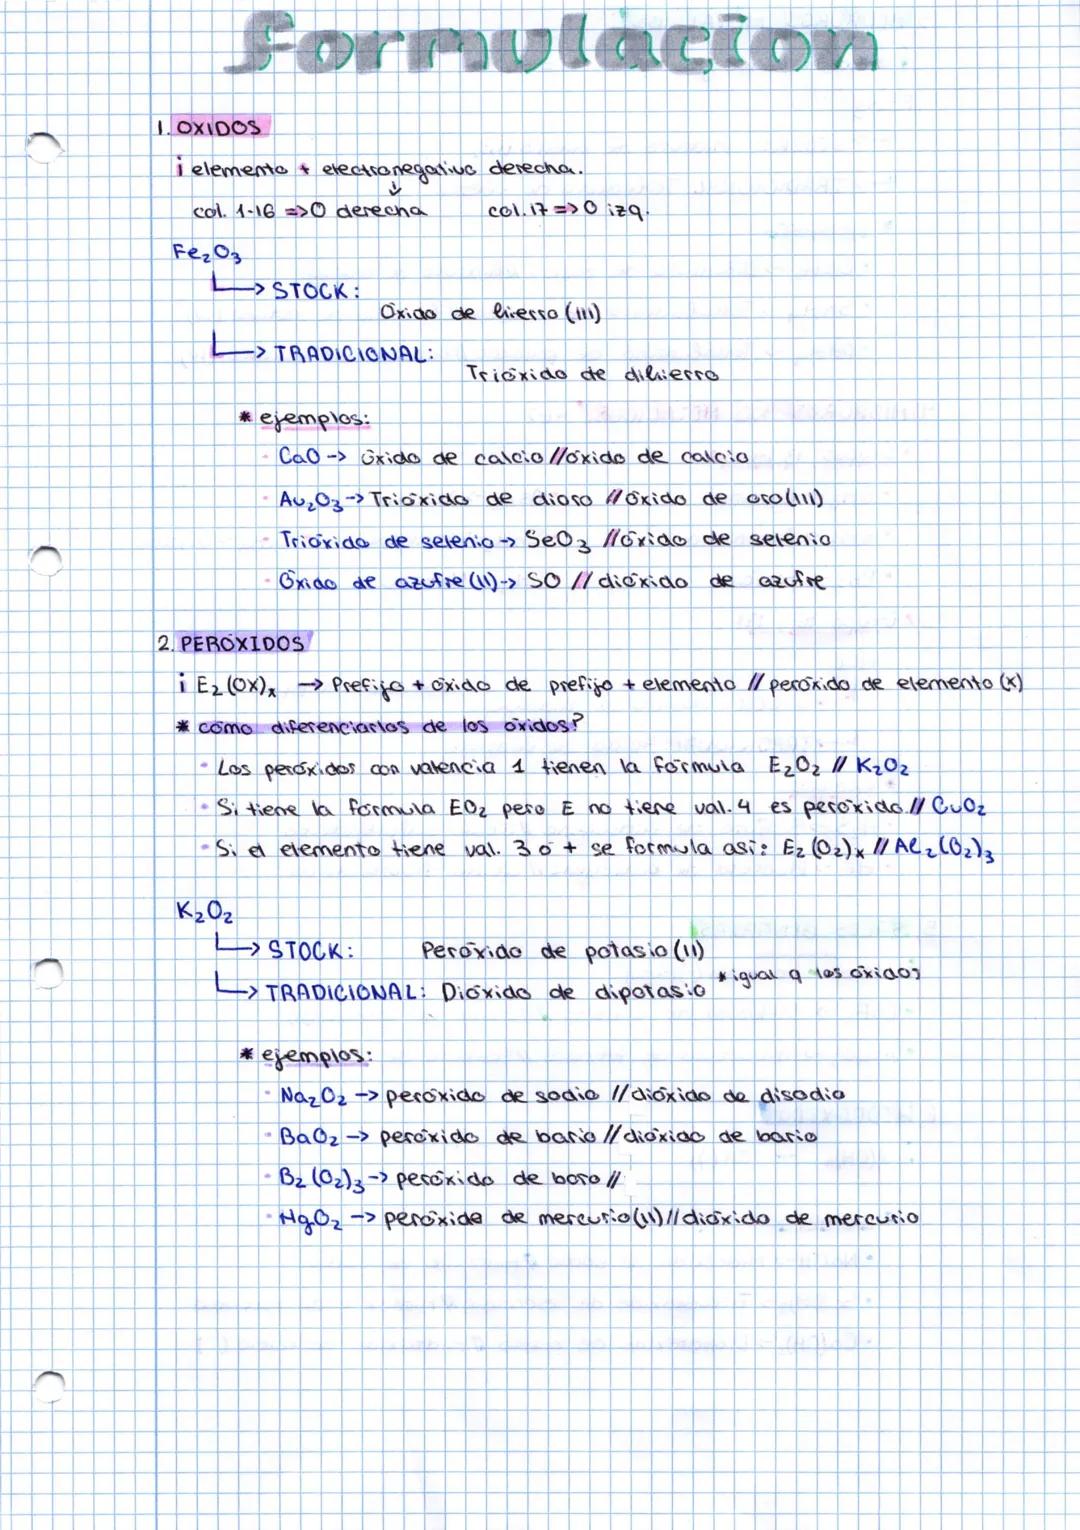 Formulación
1. OXIDOS
¡ elemento + electronegativo derecha.
↓
col. 1-16 => O derecha col. 17 => O izq.
Fe₂O₃
→ STOCK:
Óxido de hierro (III)
→ TRADICIONAL:
Trióxido de dihierro
* ejemplos:
· CaO -> óxido de calcio // óxido de calcio
· Au₂O₃ -> Trióxido de dioro // óxido de oro (III)
· Trióxido de selenio -> SeO₃ // óxido de selenio
· Óxido de azufre (II) -> SO // dióxido de azufre
2. PERÓXIDOS
¡ E₂(OX)ₓ → Prefijo + óxido de prefijo + elemento // peróxido de elemento (x)
* cómo diferenciarlos de los óxidos?
· Los peróxidos con valencia 1 tienen la fórmula E₂O₂ // K₂O₂
· Si tiene la fórmula EO₂ pero E no tiene val. 4 es peróxido. // CuO₂
· Si el elemento tiene val. 3 ó + se formula así: E₂(O₂)ₓ // Al₂(O₂)₃
K₂O₂
→ STOCK: Peróxido de potasio (II)
* igual q los óxidos
→ TRADICIONAL: Dióxido de dipotasio
* ejemplos:
· Na₂O₂ -> peróxido de sodio // dióxido de disodio
· BaO₂ -> peróxido de bario // dióxido de bario
· B₂(O₂)₃ -> peróxido de boro //
· HgO₂ -> peróxido de mercurio (II) // dióxido de mercurio